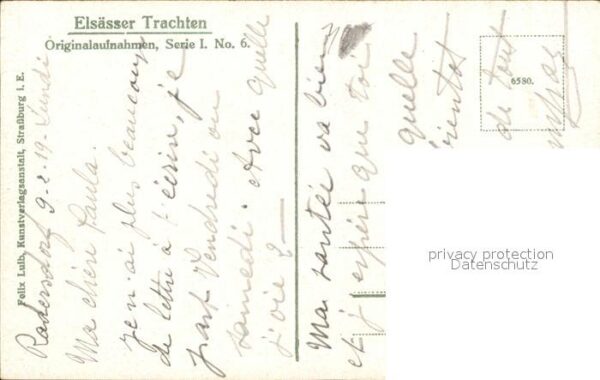 Elsässer Trachten
Originalaufnahmen, Serie I. No. 6.
Felix Luib, Kunstverlagsanstalt, Straßburg i. E.
6580.
Radersdorf 9-2-19-Lundi
Ma chère Paula.
je n'ai plus beaucoup
de lettre à t'écrire, je
pars Vendredi ou
samedi. Avec quelle
joie
Ma santée va bien
et j'espère que toi
quelle
de tout
privacy protection
Datenschutz